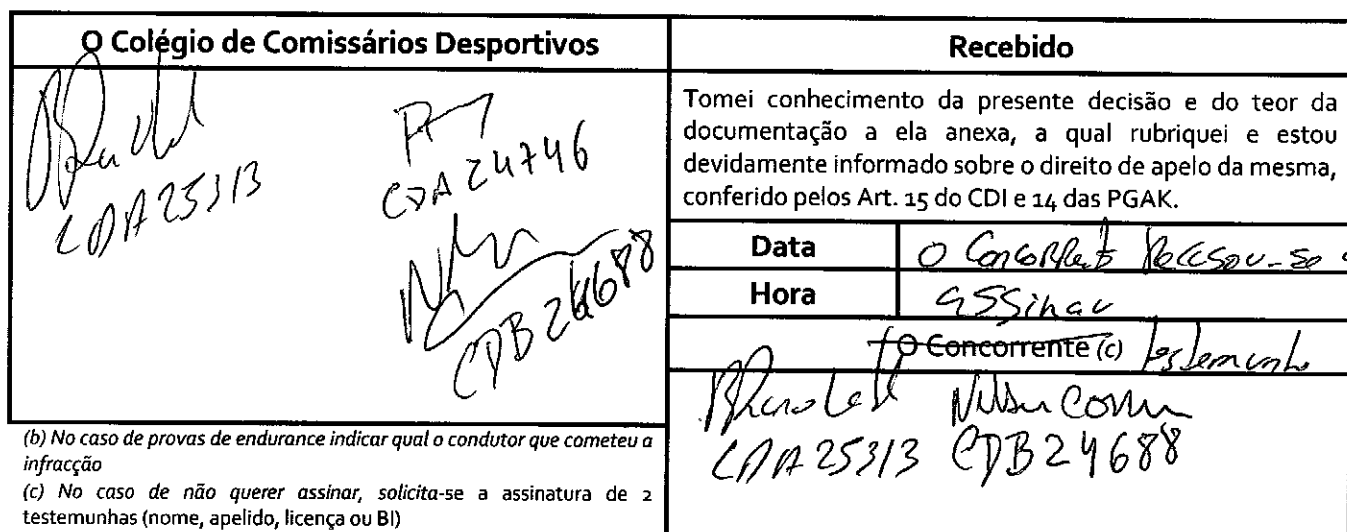 O Colégio de Comissários Desportivos
CDA 25313
CDA 24746
CDB 24688
(b) No caso de provas de endurance indicar qual o condutor que cometeu a
infracção
(c) No caso de não querer assinar, solicita-se a assinatura de 2
testemunhas (nome, apelido, licença ou BI)
Recebido
Tomei conhecimento da presente decisão e do teor da
documentação a ela anexa, a qual rubriquei e estou
devidamente informado sobre o direito de apelo da mesma,
conferido pelos Art. 15 do CDI e 14 das PGAK.
Data O Concorrente Recusou-se a
Hora assinar
O Concorrente (c) testemunho
CDA 25313 CDB 24688